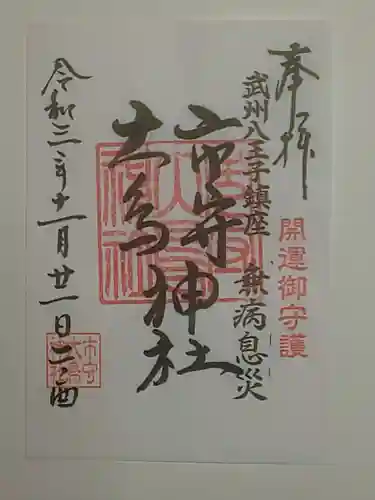 奉拝
武州八王子鎮座
開運御守護
無病息災
市守神社
大鳥神社
令和三年十一月廿一日二の酉